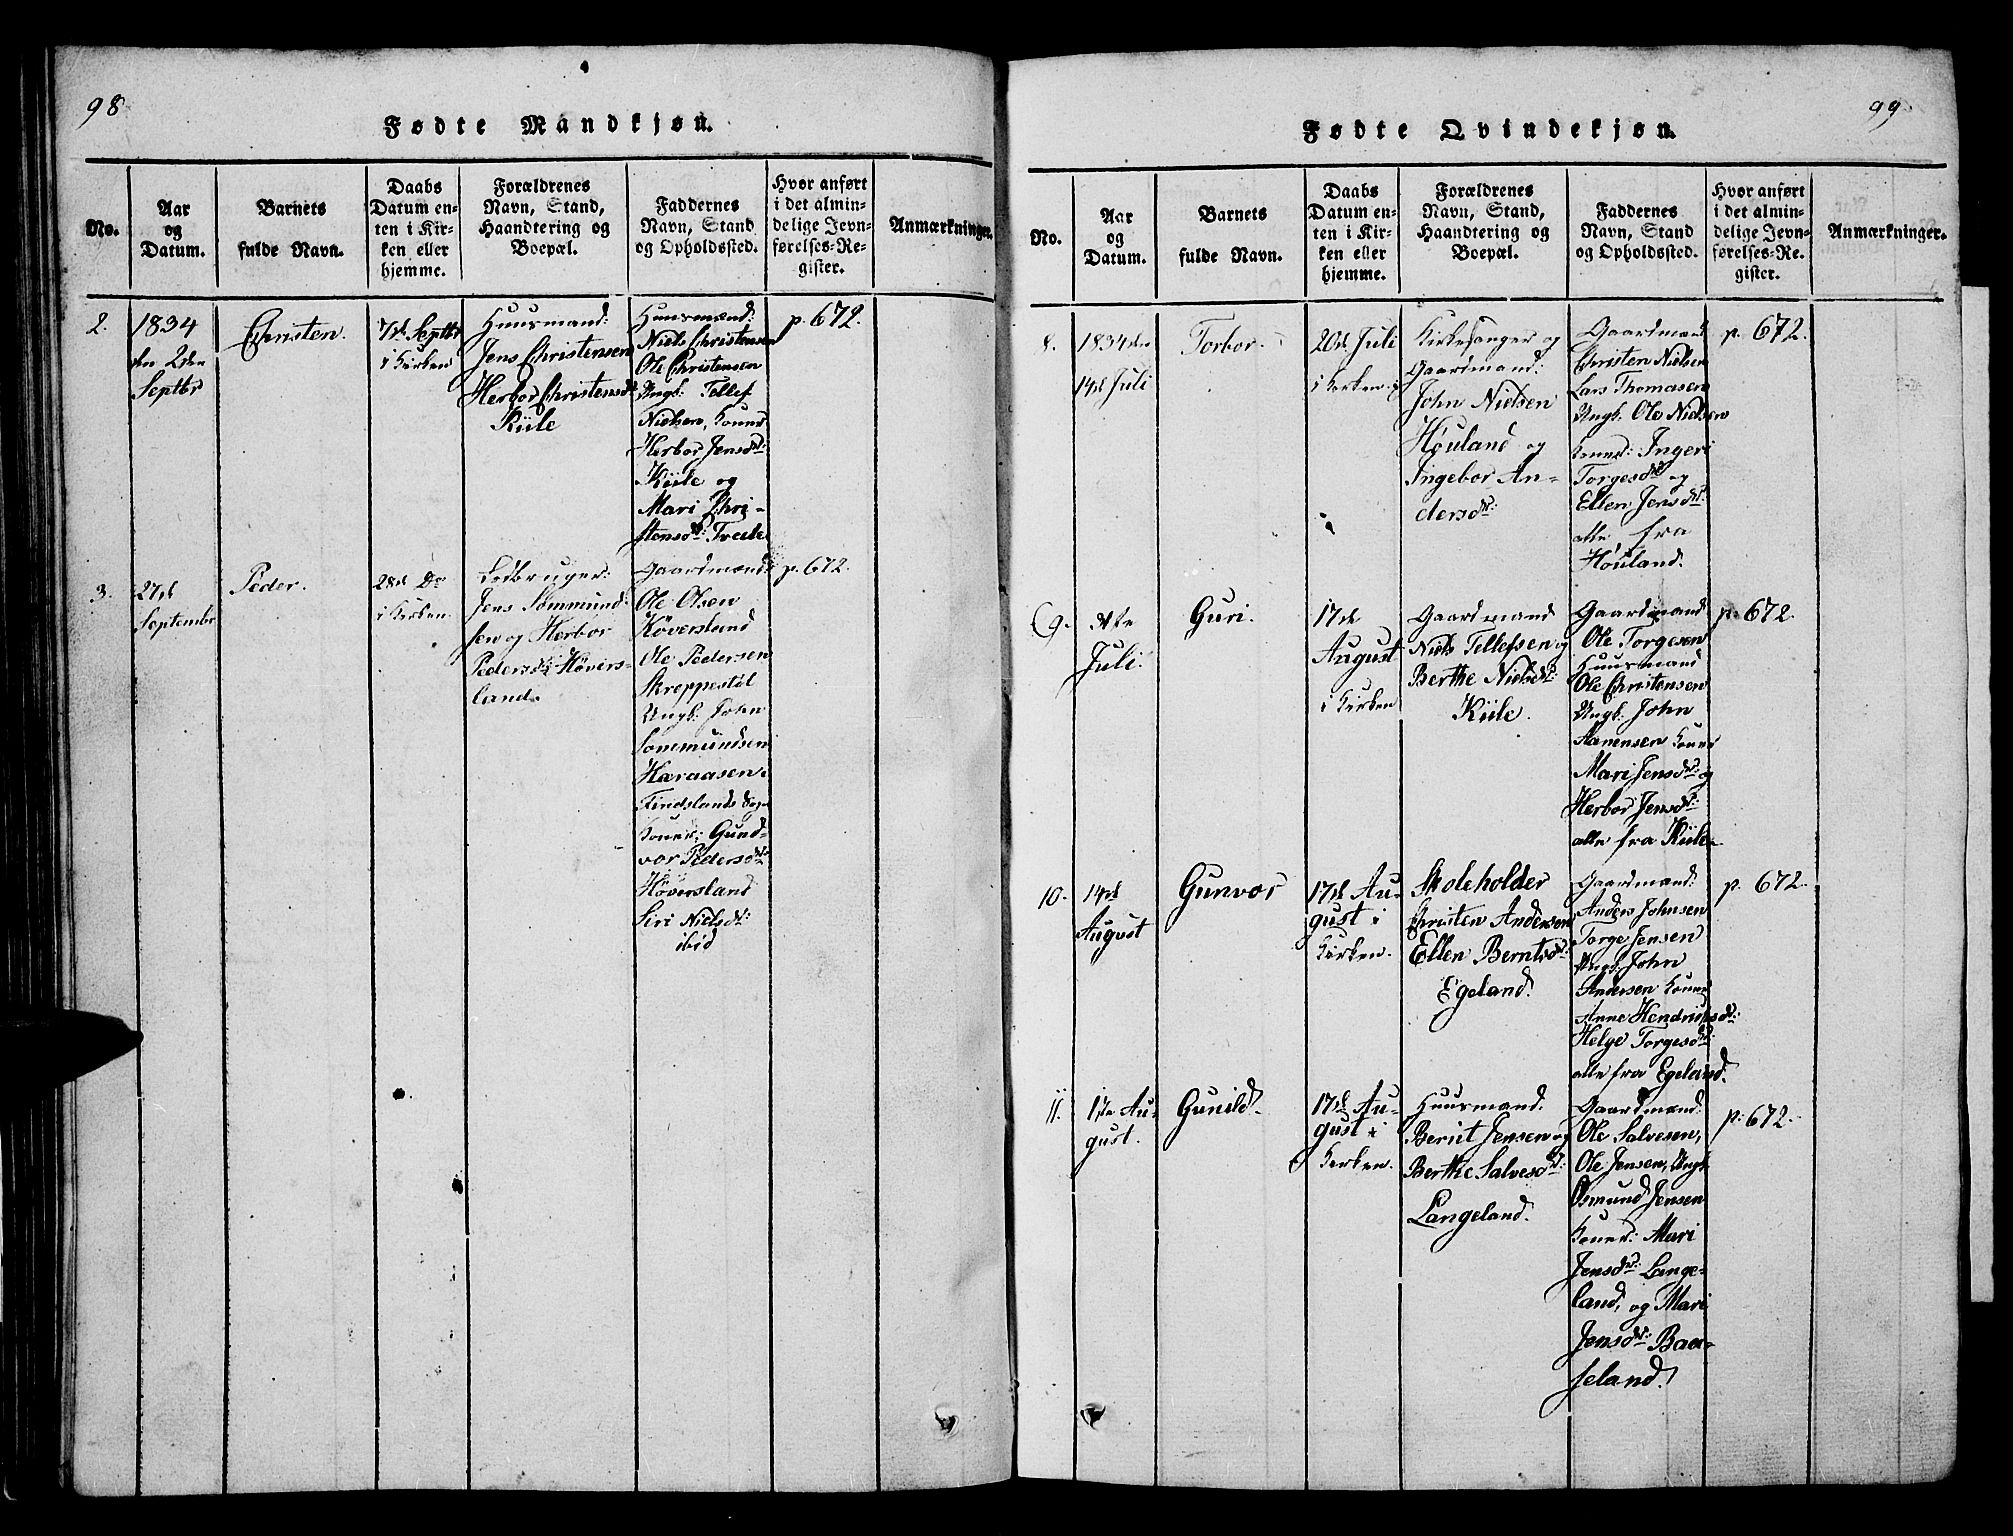 98
Fødte Mandkjøn.
No.
Aar
og
Datum.
Barnets
fulde Navn.
Daabs
Datum en-
ten i Kir-
ken eller
hjemme.
Forældrenes
Navn, Stand,
Haandtering og
Boepæl.
Faddernes
Navn, Stand
og Opholdssted.
Hvor anført
i det almin-
delige Jevn-
førelses-Re-
gister.
Anmærkninger.
2.
1834
den 2den
Septbr
Christen.
7de Septbr
i Kirken
Huusmand:
Jens Christensen
Herbor Christensdr
Kiile
Huusmænd:
Niels Christensen
Ole Christensen
Ungk: Tellef
Nielsen, Koner
Herbor Jensdr:
Kiile og
Mari Chri-
stensdr:
p. 672.
3.
27de
Septembr
Peder.
28de Do
i Kirken.
Lodbruger:
Jens Sommund-
sen og Herbor
Pedersdr Høvers-
land.
Gaardmænd:
Ole Olsen
Høversland
Ole Pedersen
Skroppestöl
Ungk: John
Sommundsen
Haraasen.
Findslands
Koner: Gund-
vor Pedersdr
Høversland
Siri Nielsdr:
ibid
p. 672.
99
Fødte Qvindekjøn.
No.
Aar
og
Datum.
Barnets
fulde Navn.
Daabs
Datum en-
ten i Kir-
ken eller
hjemme.
Forældrenes
Navn, Stand,
Haandtering og
Boepæl.
Faddernes
Navn, Stand
og Opholdssted.
Hvor anført
i det almin-
delige Jevn-
førelses-Re-
gister.
Anmærkninger.
8.
1834 den
14de Juli
Torbor.
20de Juli
i Kirken.
Kirkesanger og
Gaardmand:
John Nielsen
Høuland og
Ingebor An-
dersdr:
Gaardmænd
Christen Nielsen
Lars Thomasen
Ungk. Ole Nielsen
Koner: Ingeri
Torgesdr og
Ellen Jensdr:
alle fra
Høuland.
p. 672.
9.
Juli.
Guri.
17de
August
i Kirken
Gaardmand
Niels Tellefsen og
Berthe Nielsdr:
Kiile.
Gaardmand
Ole Torgesen
Huusmand
Ole Christensen
Ungk. John
Hanensen Koner
Mari Jensdr: og
Herbor Jensdr:
alle fra Kiile.
p. 672.
10.
14de
August
Gunvor
17de Au-
gust i
Kirken.
Skoleholder
Christen Andersen
Ellen Berntsdr:
Egeland.
Gaardmænd:
Anders Johnsen
Torge Jensen
Ungk. John
Andersen Koner
Anne Hendriksdr:
Helge Torgesdr:
alle fra Egeland.
p. 672.
11.
1ste Au-
gust.
Gunild.
17de Au-
gust i
Kirken.
Huusmand.
Berint Jensen og
Berthe Salvesdr:
Langeland.
Gaardmænd:
Ole Salvesen,
Ole Jensen, Ungk
Osmund Jensen
Koner: Mari
Jensdr: Lange-
land, og Mari
Jensdr: Baa-
seland.
p. 672.